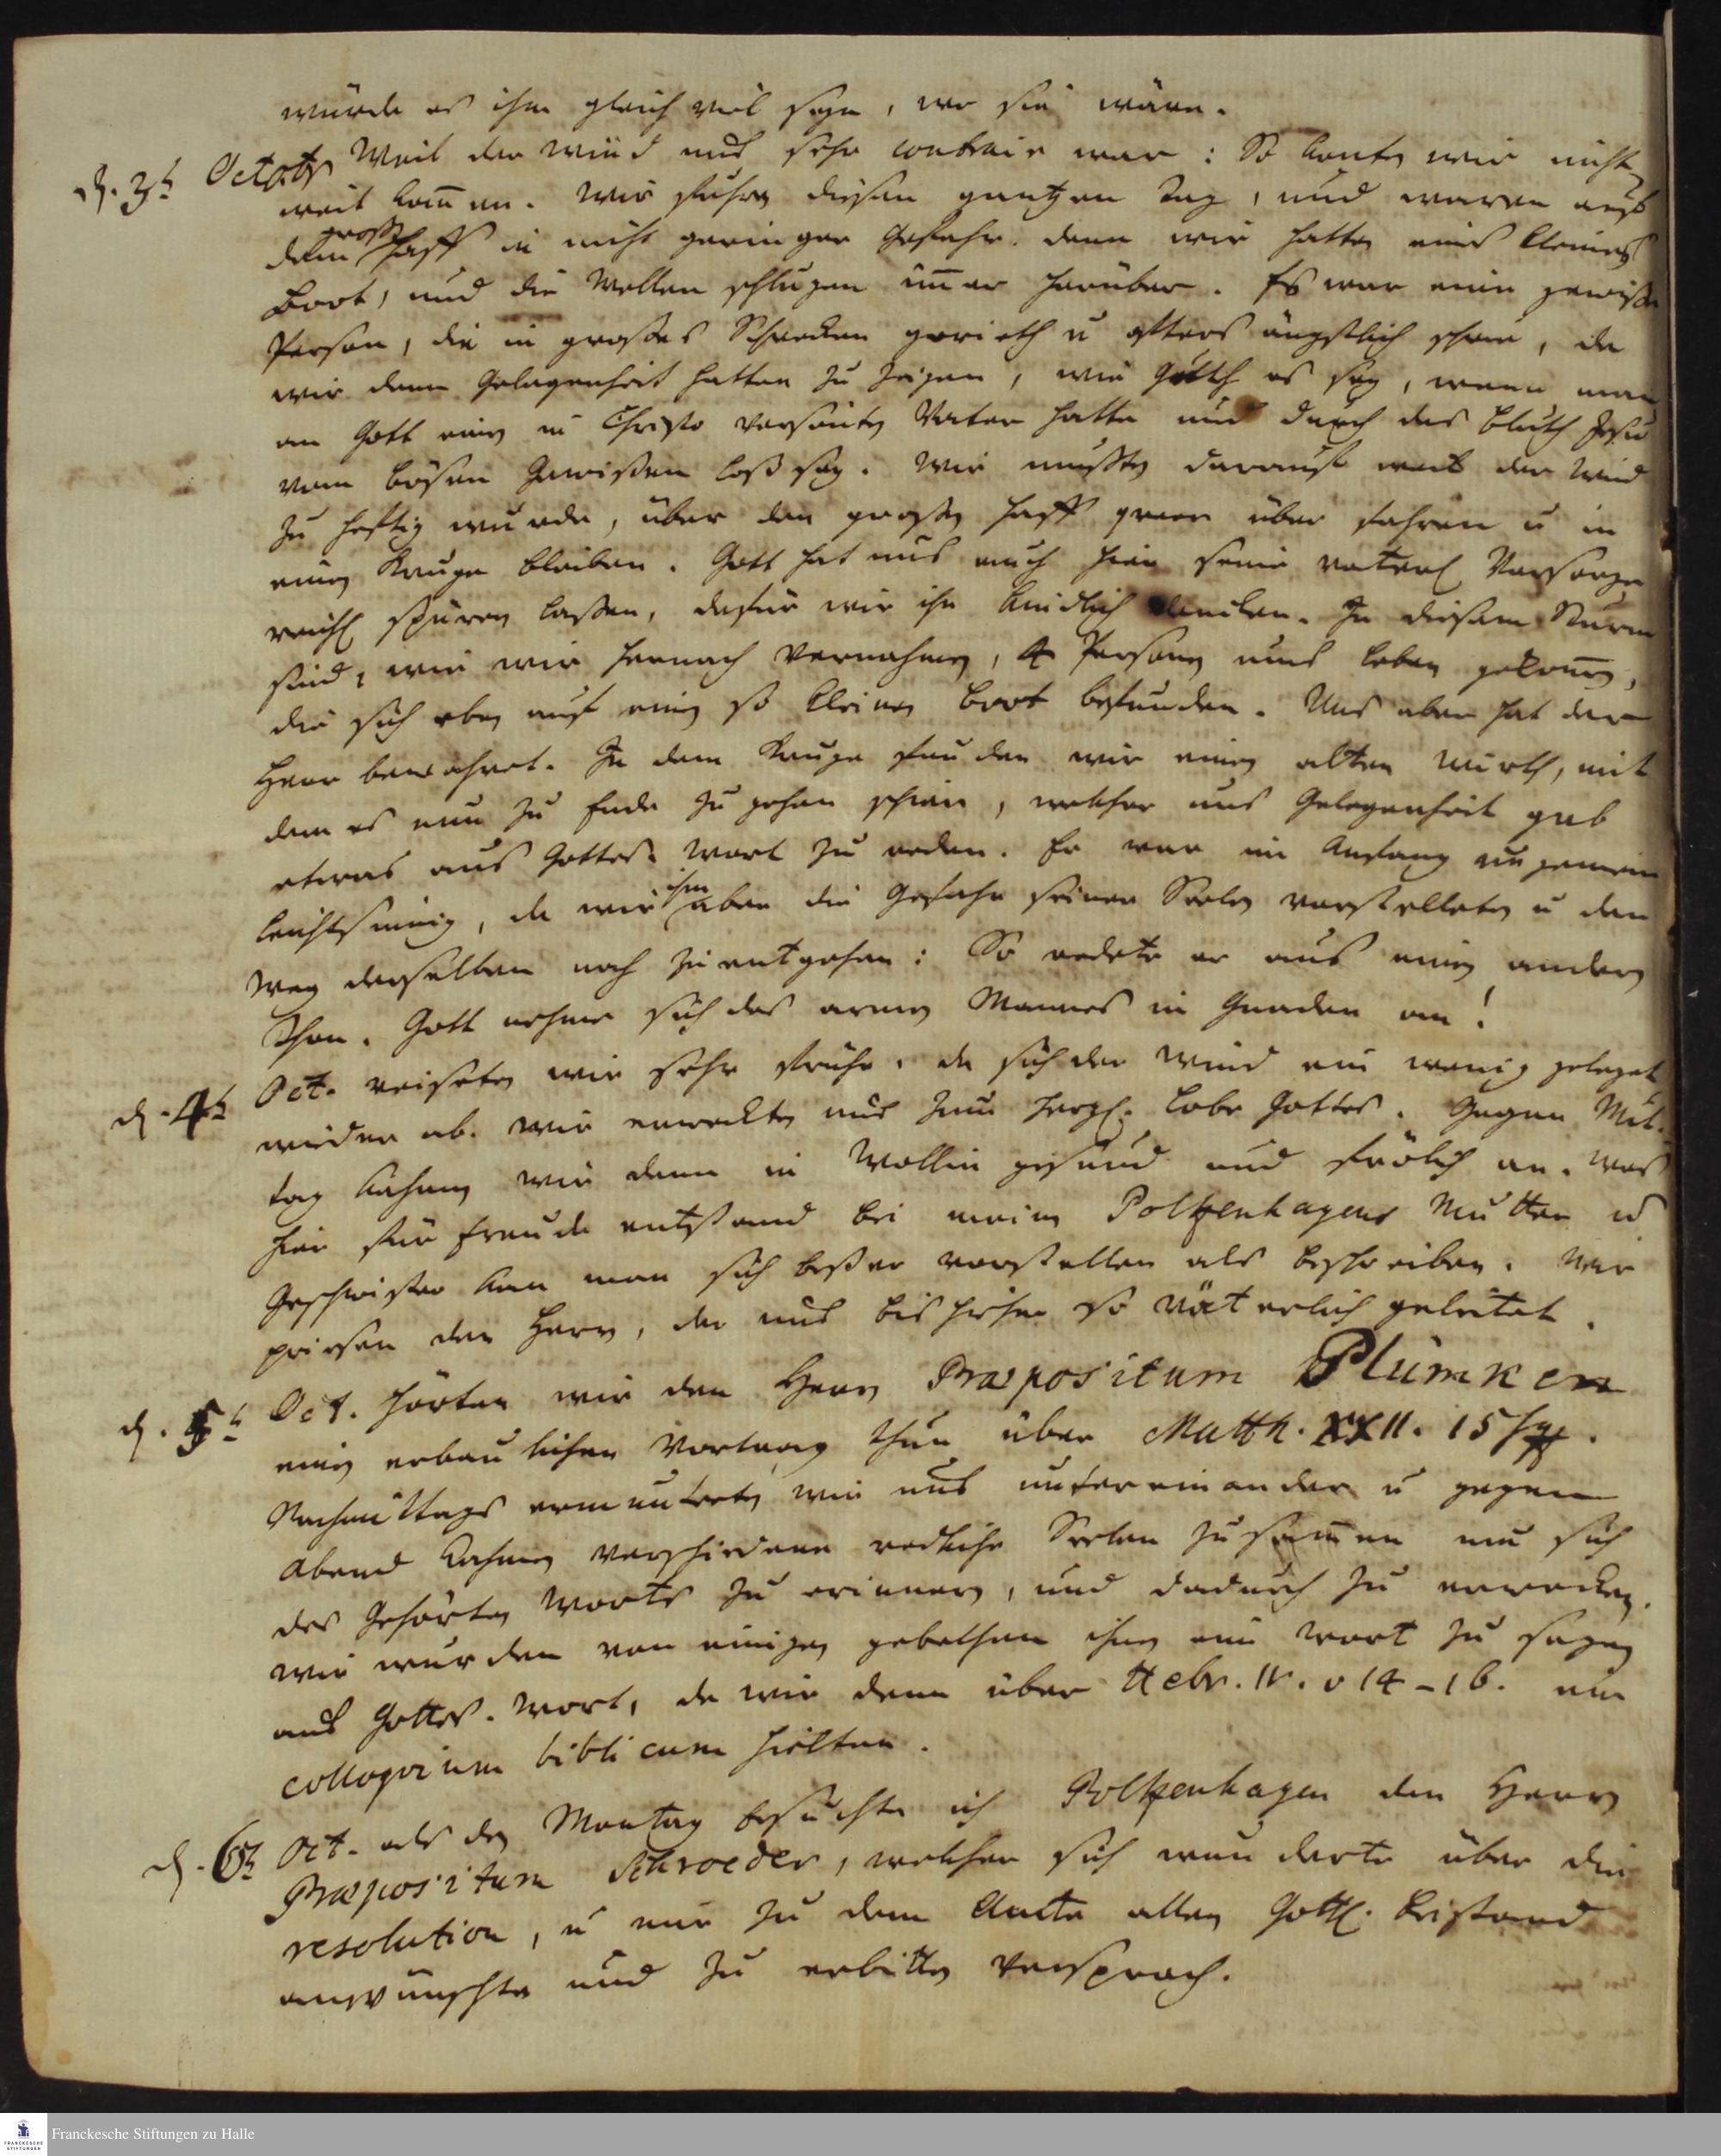 würde es ihm gleich viel seyn, wo sie wären.
d. 3t. Octobr Weil der Wind uns sehr contrair war: So konten wir nicht
weit kom̄en. Wir fuhren diesen gantzen Tag, und waren auf
dem großen Haff in nicht geringer Gefahr. denn wir hatten ein kleines
Boot, und die Wellen schlugen im̄er herüber. Es war eine gewiße
Person, die in großes Schrecken gerieth u öfters ängstlich schrie, da
wir denn Gelegenheit hatten zu zeigen, wie gut es sey, wenn man
an Gott einen in Christo versönten Vater hätte und durch das Bluth Jesu
vom bösen Gewißen loß sey. Wir mußten darauf weil der Wind
zu heftig wurde, über den großen Haff quer über fahren u in
einem Kruge bleiben. Gott hat uns auch hier seine väterl. Vorsorge
reichl. spüren laßen, dafür wir ihm kindlich dancken. In diesem Sturm
sind, wie wir hernach vernahmen, 4 Personen ums Leben gekom̄en,
die sich eben auf einem so kleinen Boot befunden. Uns aber hat der
Herr bewahret. In dem Kruge funden wir einen alten Wirth, mit
dem es nun zu Ende zu gehen schien, welcher uns Gelegenheit gab
etwas aus Gottes Wort zu reden. Er war im Anfang ungemein
leichtsinnig, da wir ihm aber die Gefahr seiner Seelen vorstelleten u den
Weg derselben noch zu entgehen: So redete er aus einem andern
Thon. Gott nehme sich des armen Mannes in Gnaden an!
d. 4t. Oct. reiseten wir sehr frühe, da sich der Wind ein wenig geleget
wieder ab. Wir erweckten uns zum hertzl. Lobe Gottes. Gegen Mit-
tag kahmen wir denn in Wollin gesund und frölich an. Was
hier für Freude entstand bei meiner Poltzenhagens Mutter u
Geschwister kan man sich beßer vorstellen als beschreiben. Wir
priesen den Herrn, der uns bis hieher so väterlich geleitet.
d. 5t. Oct. hörten wir den Herrn Præpositum Plümken
einen erbaulichen Vortrag thun über Matth. XXII. 15 sqq.
Nachmittags ermunterten wir uns untereinander u gegen
Abend kahmen verschiedene redliche Seelen zusam̄en um sich
des gehörten Worts zu erinnern, und dadurch zu erwecken.
Wir wurden von einigen gebethen ihnen ein Wort zu sagen
aus Gottes Wort, da wir denn über Hebr. IV. v 14-16. ein
colloquium biblicum hielten.
d. 6t. Oct. als den Montag besuchte ich Poltzenhagen den Herrn
Præpositum Schroeder, welcher sich wunderte über die
resolution, u mir zu dem Amte allen Göttl. Beistand
anwünschte und zu erbitten versprach.
Franckesche Stiftungen zu Halle